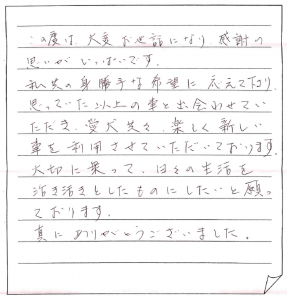 この度は、大変お世話になり、感謝の
思いがいっぱいです。
私共の身勝手な希望に応えて下さり、
思っていた以上の車と出会わせてい
ただき、愛犬共々、楽しく新しい
車を利用させていただいております。
大切に乗って、日々の生活を
活き活きとしたものにしたいと願っ
ております。
真にありがとうございました。